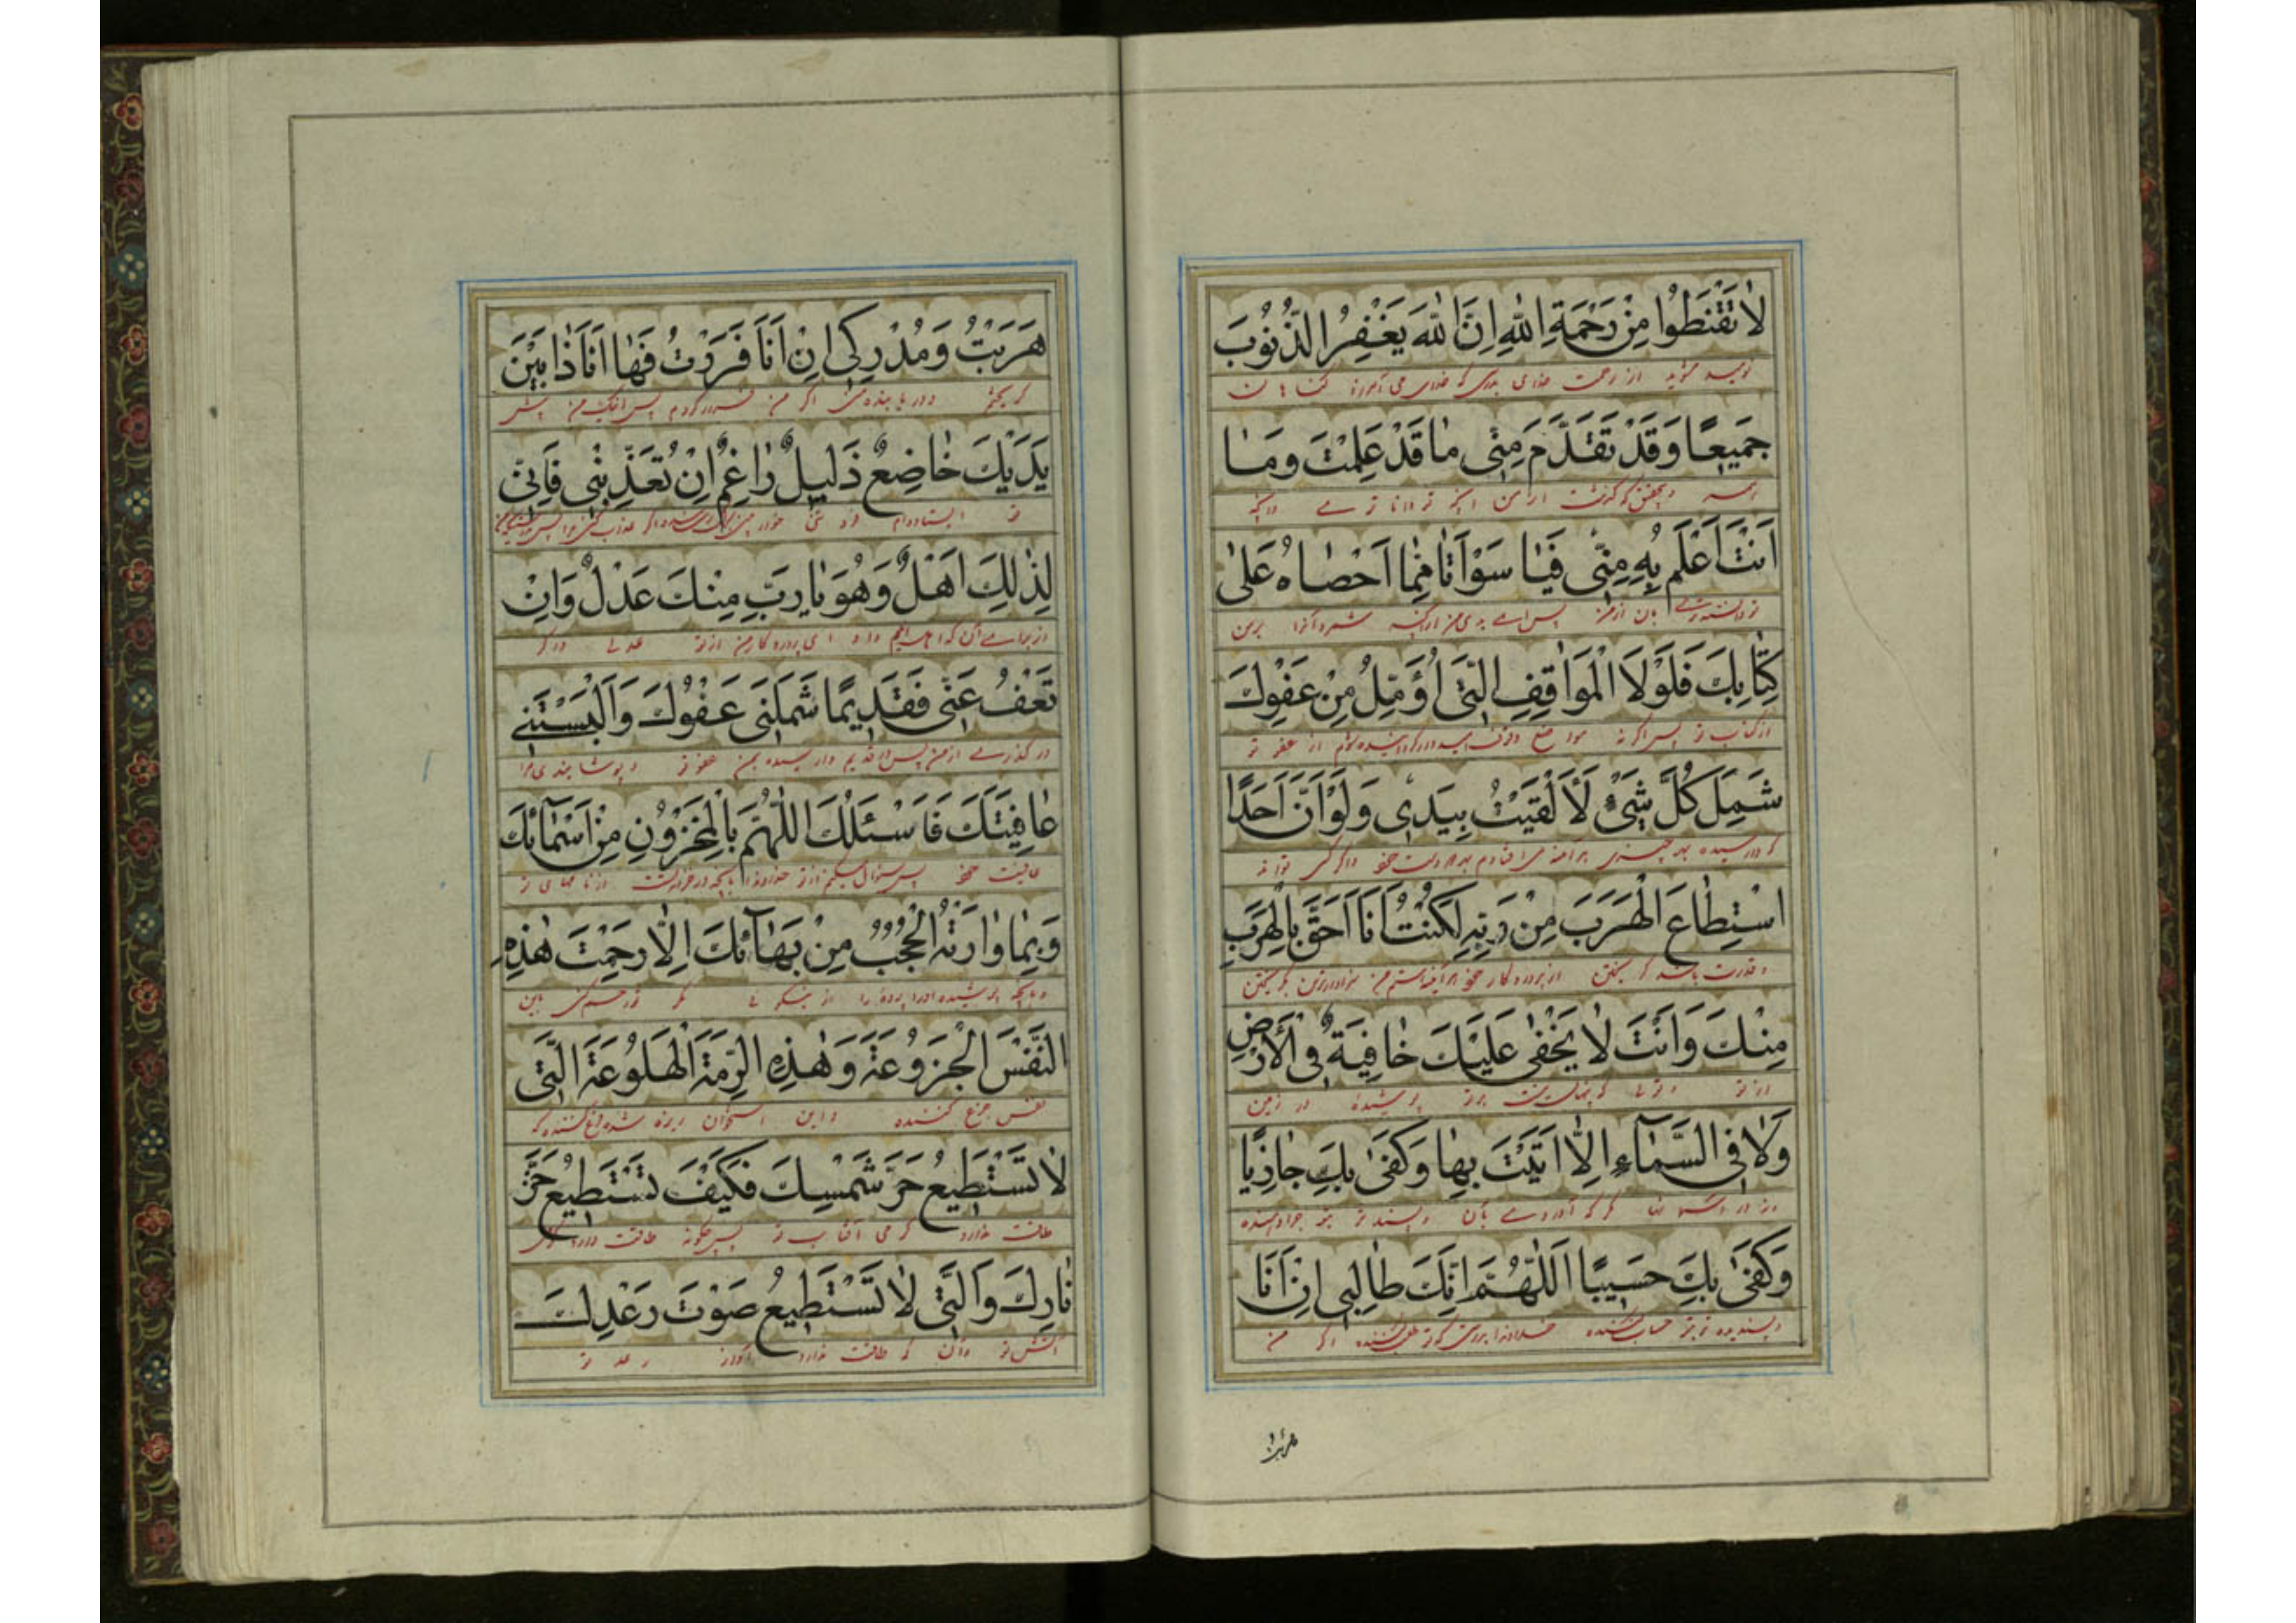 لاٰ تَقْنَطُوا مِنْ رَحْمَةِ اللهِ اِنَّ اللهَ يَغْفِرُ الذُّنُوبَ
نومید مشوید از رحمت خدای بدرستی که خدای می آمرزد گناهان
جَمٖيعًا وَقَدْ تَقَدَّمَ مِنّٖى مٰا قَدْ عَلِمْتَ وَمٰا
همه و بتحقیق که گذشت از من آنچه تو دانا تری و آنچه
اَنْتَ اَعْلَمُ بِهٖ مِنّٖى فَيٰا سَوْاَتٰا مِمّٰا اَحْصٰاهُ عَلَىَّ
بان از من پس ای بدی من از آنچه شمرد آنرا بر من
كِتٰابُكَ فَلَوْلَا الْمَوٰاقِفِ الَّتٖى اُؤَمِّلُ مِنْ عَفْوِكَ
از کتاب تو پس اگر نه از عفو تو
شَمِلَ كُلَّ شَىْءٍ لَاَلْقَيْتُ بِيَدٖى وَلَوْ اَنَّ اَحَدًا
که در رسیده بهر چیزی هر آینه می افتادم بهر دو دست خود و اگر کسی تواند
اسْتَطٰاعَ الْهَرَبَ مِنْ رَبِّهٖ لَكُنْتُ اَنَا اَحَقَّ بِالْهَرَبِ
و قدرت باشد گریختن از پروردگار خود هر آینه هستم من سزاوارترین بگریختن
مِنْكَ وَاَنْتَ لاٰ يَخْفٰى عَلَيْكَ خٰافِيَةٌ فِى الْاَرْضِ
از تو و توئی که پنهان نیست بر تو پوشیده در زمین
وَلاٰ فِى السَّمٰٓاءِ اِلاّٰ اَتَيْتَ بِهٰا وَكَفٰى بِكَ جٰازِيًا
و نه در آسمانها مگر که آوردی بآن و بسند تو جزا دهنده
وَكَفٰى بِكَ حَسٖيبًا اَللّٰهُمَّ اِنَّكَ طٰالِبٖى اِنْ اَنَا
حساب کننده خداوندا بدرستی که تو طلب کننده اگر من
هربت
هَرَبْتُ وَمُدْرِكٖى اِنْ اَنَا فَرَرْتُ فَهٰا اَنَا ذٰا بَيْنَ
گریختم و دریابنده منی اگر من فرار کردم پس اینک من پیش
يَدَيْكَ خٰاضِعٌ ذَلٖيلٌ رٰاغِمٌ اِنْ تُعَذِّبْنٖى فَاِنّٖى
تو ایستاده ام
لِذٰلِكَ اَهْلٌ وَهُوَ يٰا رَبِّ مِنْكَ عَدْلٌ وَاِنْ
از برای آن ای پروردگار من از تو عدلی و اگر
تَعْفُ عَنّٖى فَقَدٖيمًا شَمَلَنٖى عَفْوُكَ وَاَلْبَسْتَنٖى
در گذری از من پس قدیم در رسیده بمن عفو تو و پوشانیدی مرا
عٰافِيَتَكَ فَاَسْئَلُكَ اللّٰهُمَّ بِالْمَخْزُونِ مِنْ اَسْمٰٓائِكَ
عافیت خود پس سؤال میکنم از تو خداوندا بآنچه در خزانه است از نامهای تو
وَبِمٰا وٰارَتْهُ الْحُجُبُ مِنْ بَهٰٓائِكَ اِلاّٰ رَحِمْتَ هٰذِهِ
و بآنچه پوشیده او را پرده ها از نیکوئی مگر تو رحم کنی باین
النَّفْسَ الْجَزُوعَةَ وَهٰذِهِ الرِّمَّةَ الْهَلُوعَةَ الَّتٖى
نفس جزع کننده و این استخوان ریزه شده جزع کننده که
لاٰ تَسْتَطٖيعُ حَرَّ شَمْسِكَ فَكَيْفَ تَسْتَطٖيعُ حَرَّ
طاقت ندارد گرمی آفتاب تو پس چگونه طاقت دارد گرمی
نٰارِكَ وَالَّتٖى لاٰ تَسْتَطٖيعُ صَوْتَ رَعْدِكَ
آتش تو و آن که طاقت ندارد آواز رعد تو